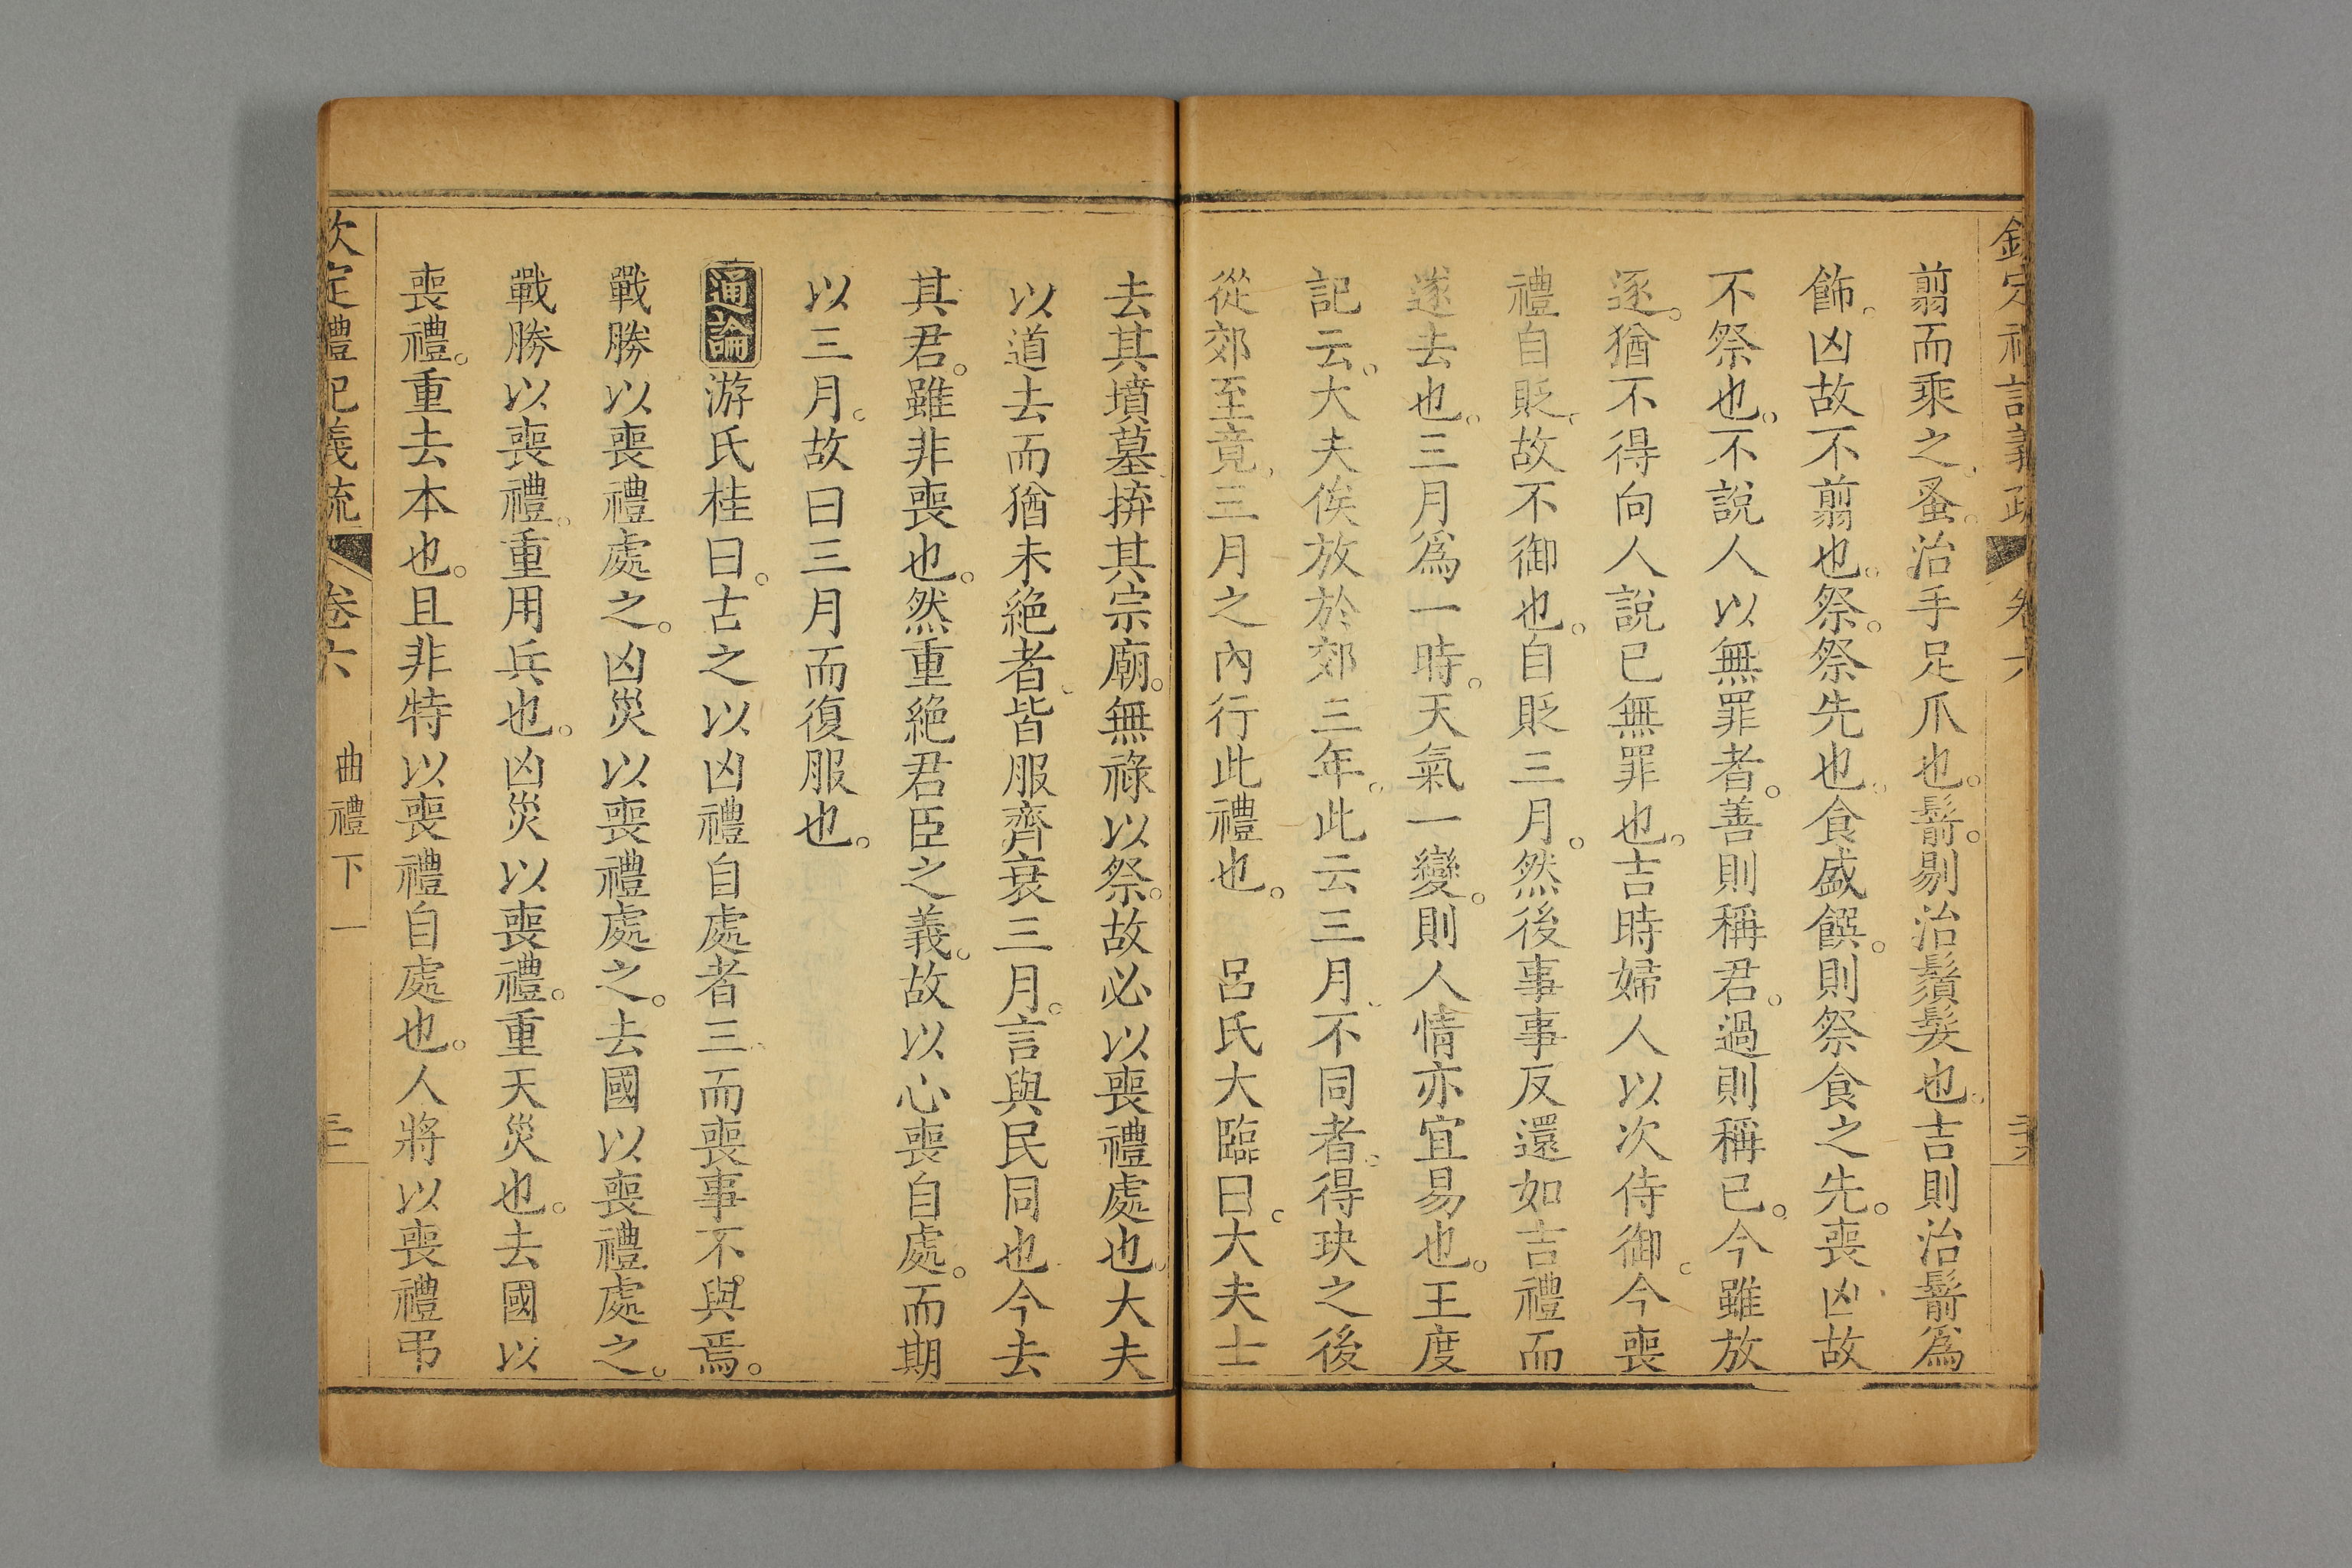 欽定禮記義疏 卷六
翦而乘之。蚤。治手足爪也。鬋。剔治鬚髮也。吉則治鬋爲
飾。凶故不翦也。祭。祭先也。食盛饌。則祭食之先。喪凶故
不祭也。不說人以無罪者。善則稱君。過則稱已。今雖放
逐。猶不得向人說已無罪也。吉時婦人以次侍御。今喪
禮自貶。故不御也。自貶三月。然後事事反還如吉禮而
遂去也。三月爲一時。天氣一變。則人情亦宜易也。王度
記云。大夫俟放於郊三年。此云三月。不同者。得玦之後
從郊至竟。三月之內行此禮也。 呂氏大臨曰。大夫士
去其墳墓。捹其宗廟。無祿以祭。故必以喪禮處也。大夫
以道去而猶未絕者。皆服齊衰三月。言與民同也今去
其君。雖非喪也。然重絕君臣之義。故以心喪自處。而期
以三月。故曰三月而復服也。
通論 游氏桂曰。古之以凶禮自處者三。而喪事不與焉。
戰勝以喪禮處之。凶災以喪禮處之。去國以喪禮處之。
戰勝以喪禮。重用兵也。凶災以喪禮。重天災也。去國以
喪禮。重去本也。且非特以喪禮自處也。人將以喪禮弔
欽定禮記義疏 卷六 曲禮下一